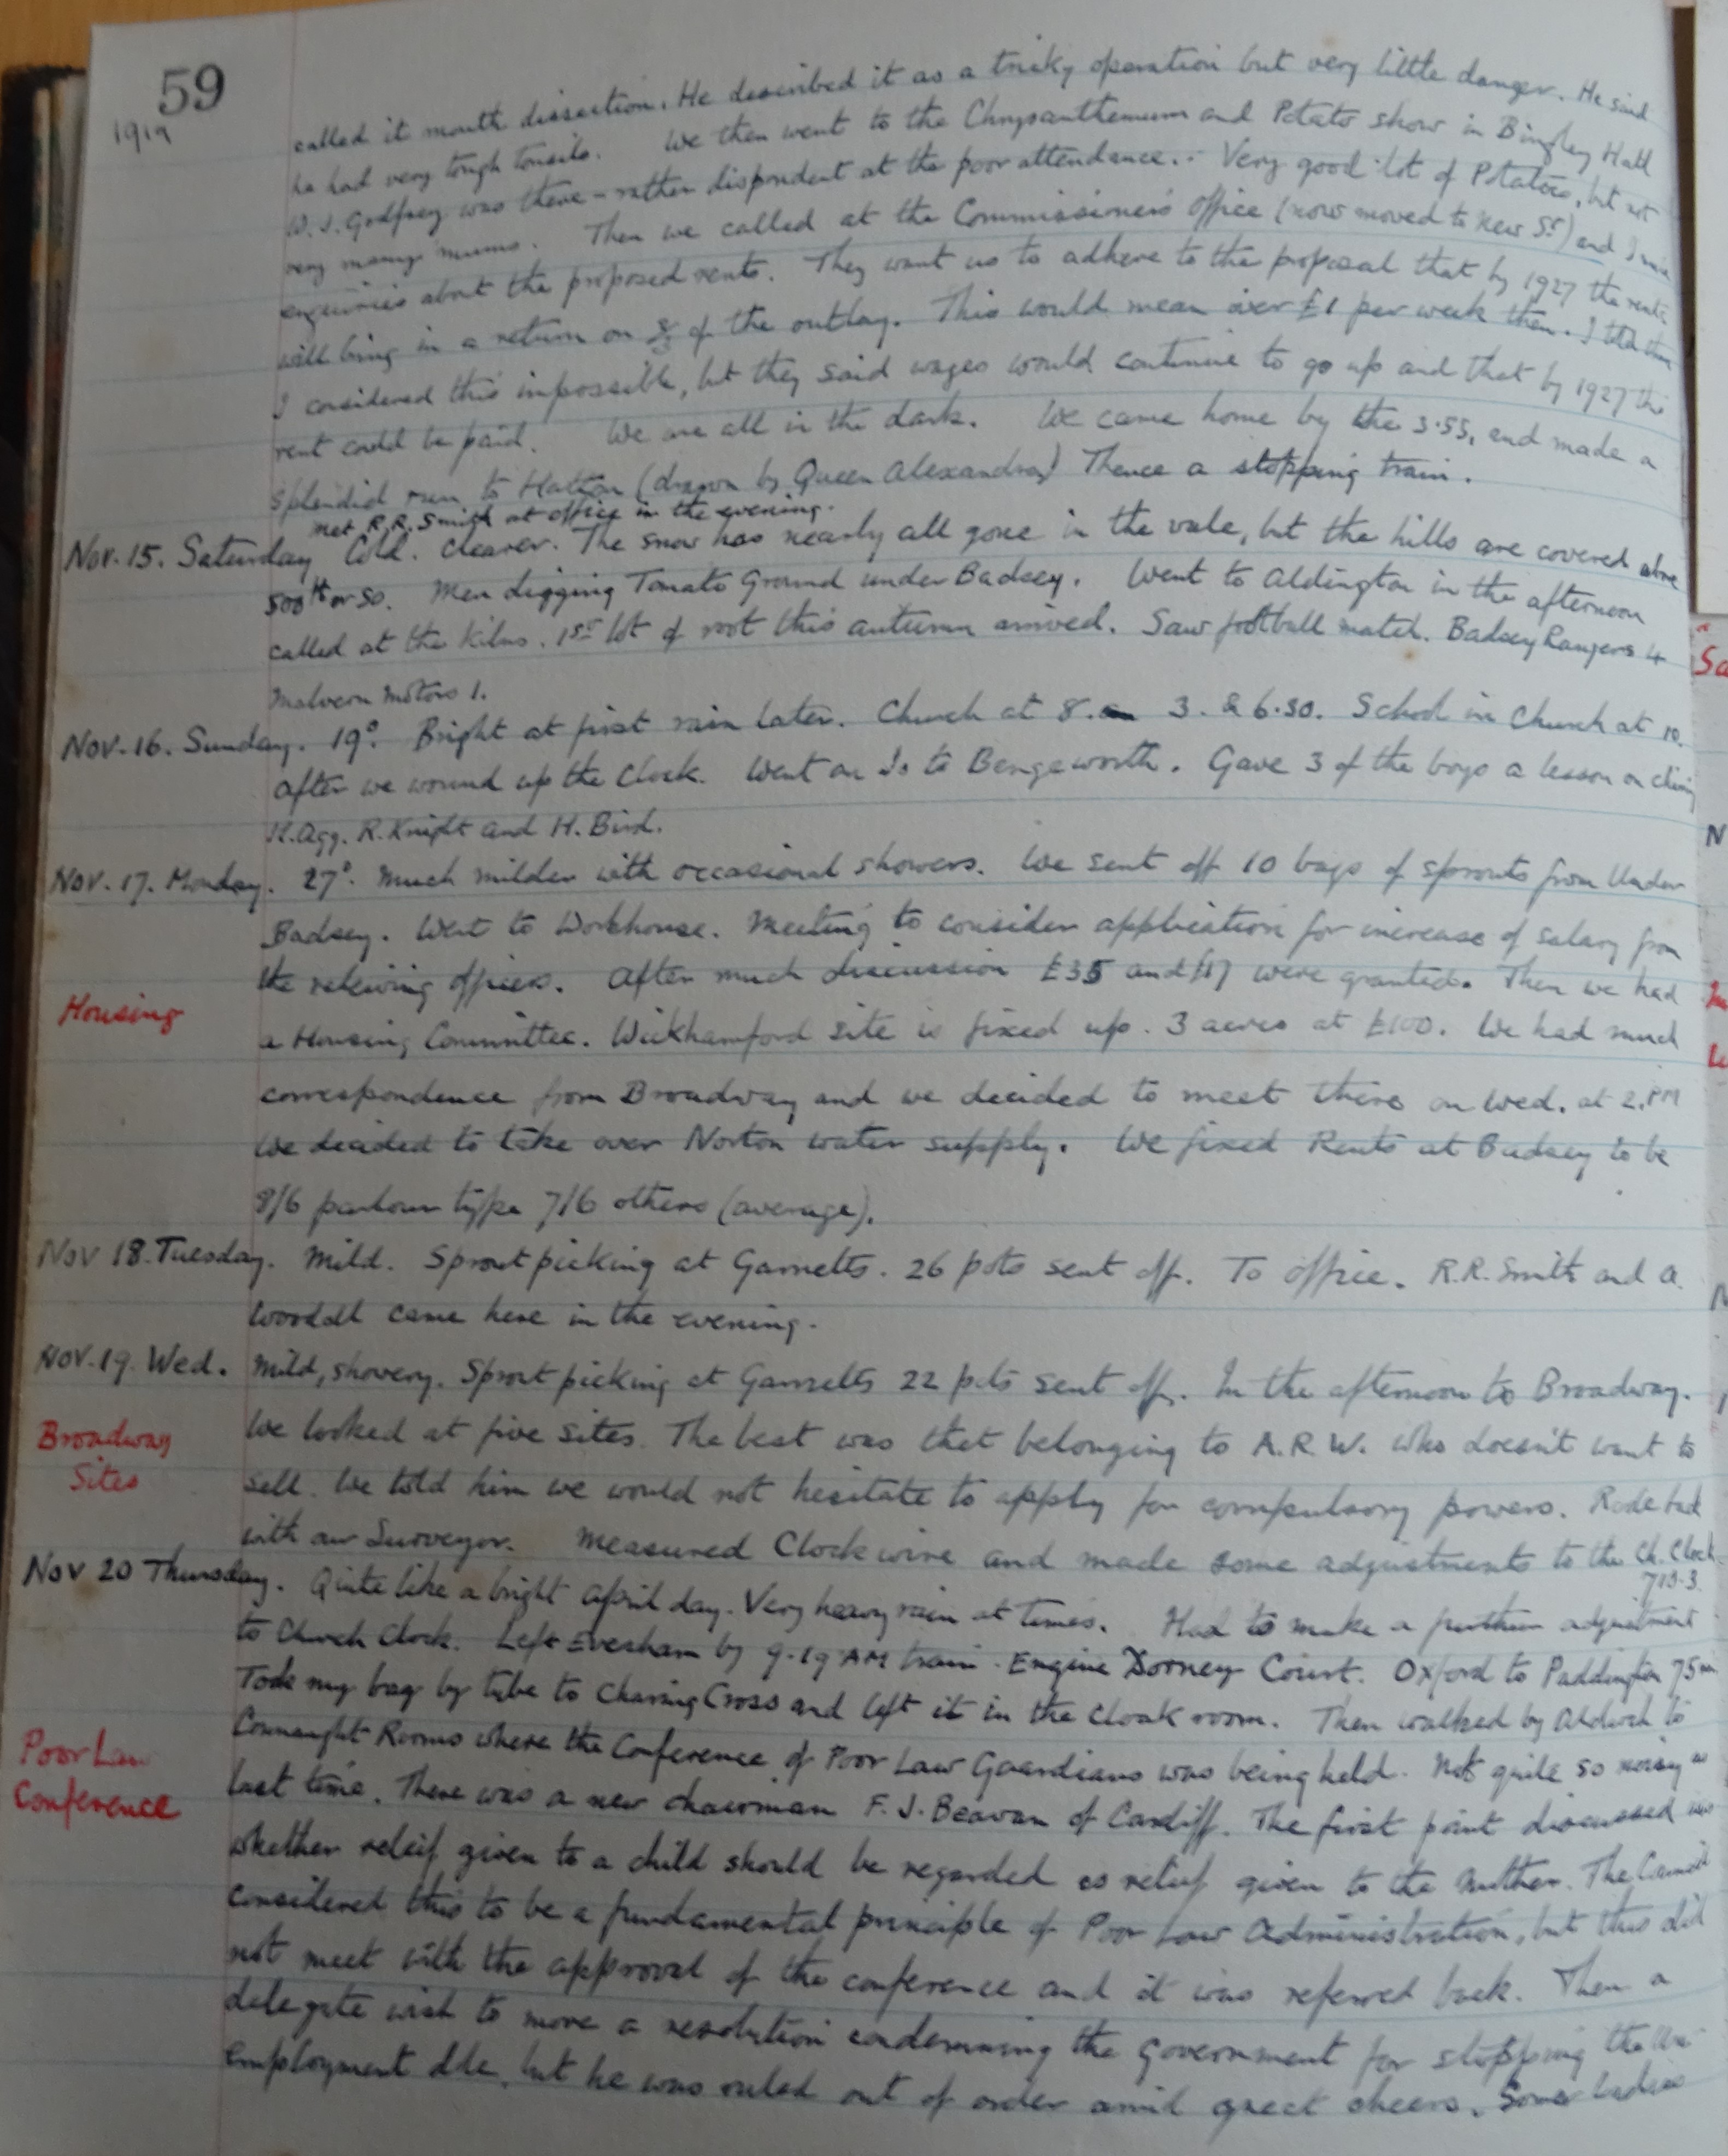 59
1919
called it mouth dissection. He described it as a tricky operation but very little danger. He said
he had very tough tonsils. We then went to the Chrysanthemum and Potato show in Bingley Hall
W.J. Godfrey was there - rather dispondent at the poor attendance. Very good lot of Potatoes, but not
very many mums. Then we called at the Commissioner's Office (now moved to New St) and I made
enquiries about the proposed rents. They want us to adhere to the proposal that by 1927 the rents
will bring in a return on ⅔ of the outlay. This would mean over £1 per week then. I told them
I considered this impossible, but they said wages would continue to go up and that by 1927 the
rent could be paid. We are all in the dark. We came home by the 3.55, and made a
splendid run to Hatton (drawn by Queen Alexandra) Thence a stopping train.
met R.R. Smith at office in the evening.
Nov. 15. Saturday Cold. Clearer. The snow has nearly all gone in the vale, but the hills are covered above
500 ft or so. Men digging Tomato Ground under Badsey. Went to Aldington in the afternoon
called at the kilns. 1st lot of root this autumn arrived. Saw football match. Badsey Rangers 4
Malvern Motors 1.
Nov. 16. Sunday. 19°. Bright at first rain later. Church at 8. 3. & 6.30. School in Church at 10.
after we wound up the clock. Went on to Bengeworth. Gave 3 of the boys a lesson on
Agg. R. Knight and H. Bird.
Nov. 17. Monday. 27°. Much milder with occasional showers. We sent off 10 bags of sprouts from Under
Badsey. Went to Workhouse. Meeting to consider application for increase of salary from
the relieving officers. After much discussion £35 and £17 were granted. Then we had
Housing
a Housing Committee. Wickhamford site is fixed up. 3 acres at £100. We had much
correspondence from Broadway and we decided to meet there on Wed. at 2.PM
We decided to take over Norton water supply. We fixed Rents at Badsey to be
8/6 parlour type 7/6 others (average).
Nov 18. Tuesday. Mild. Sprout picking at Garnetts. 26 pots sent off. To office. R.R. Smith and A.
Woodall came here in the evening.
Nov. 19. Wed. Mild, showery. Sprout picking at Garnetts 22 pots sent off. In the afternoon to Broadway.
Broadway
Sites
We looked at five sites. The best was that belonging to A.R.W. who doesn't want to
sell. We told him we would not hesitate to apply for compulsory powers. Rode back
with our Surveyor. Measured Clock wire and made some adjustments to the Ch. Clock.
Nov 20 Thursday. Quite like a bright April day. Very heavy rain at times. Had to make a further adjustment
to Church Clock. Left Evesham by 9.19 AM train. Engine Dorney Court. Oxford to Paddington 75 m
Took my bag by tube to Charing Cross and left it in the cloak room. Then walked by Aldwich to
Poor Law
Conference
Connaught Rooms where the Conference of Poor Law Guardians was being held. Not quite so noisy as
last time. There was a new chairman F. J. Beavan of Cardiff. The first point discussed was
whether relief given to a child should be regarded as relief given to the mother. The Council
considered this to be a fundamental principle of Poor Law Administration, but this did
not meet with the approval of the conference and it was referred back. Then a
delegate wish to move a resolution condemning the Government for stopping the Un-
employment dole, but he was ruled out of order amid great cheers. Some ladies